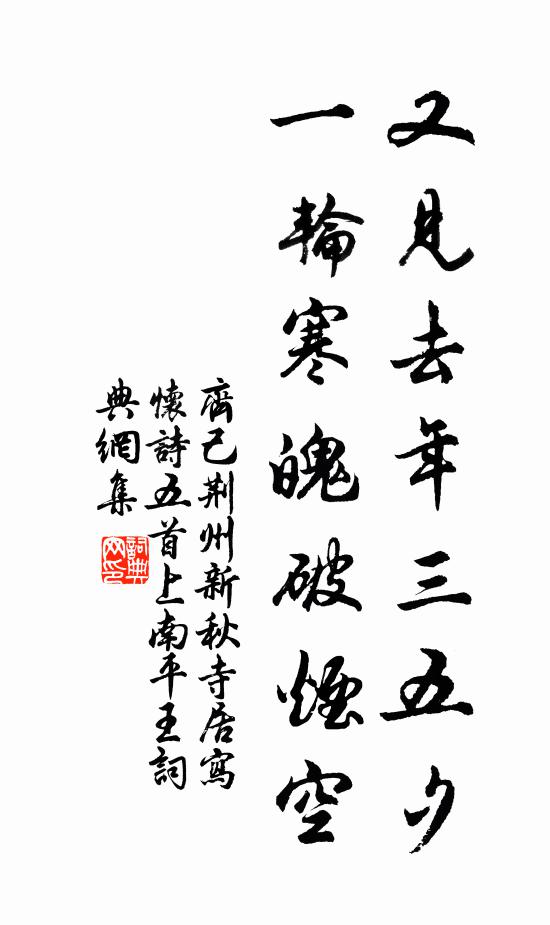 又見去年三五夕
一輪寒魄破煙空
齊己荆州新秋寺居寫
懷詩五首上南平王詞
典網集
詞典
网印